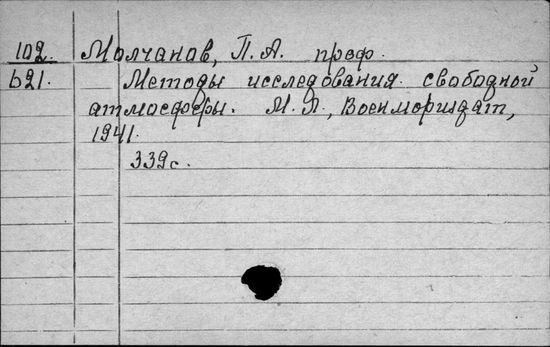 102. Молчанов, П. А. проф.
621. Методы исследования свободной
атмосферы. М. Л., Военмориздат,
1941.
339 с.